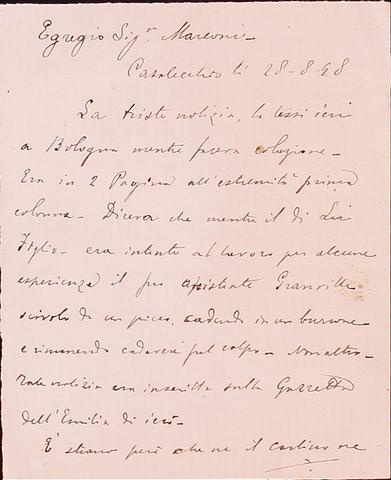 Egregio Sigr. Marconi -
Casalecchio li 28-8-98
La triste notizia, la lessi ieri
a Bologna mentre faceva colazione -
Era in 2 Pagina all'estremità prima
colonna - Diceva che mentre il di Lei
Figlio - era intento al lavoro per alcune
esperienze il suo assistente Granville
scivolò da un picco, cadendo in un burrone
e rimanendo cadavere sul colpo - Non altro -
Tale notizia era inserita sulla Gazzetta
dell'Emilia di ieri -
È strano però che ne il carlino ne